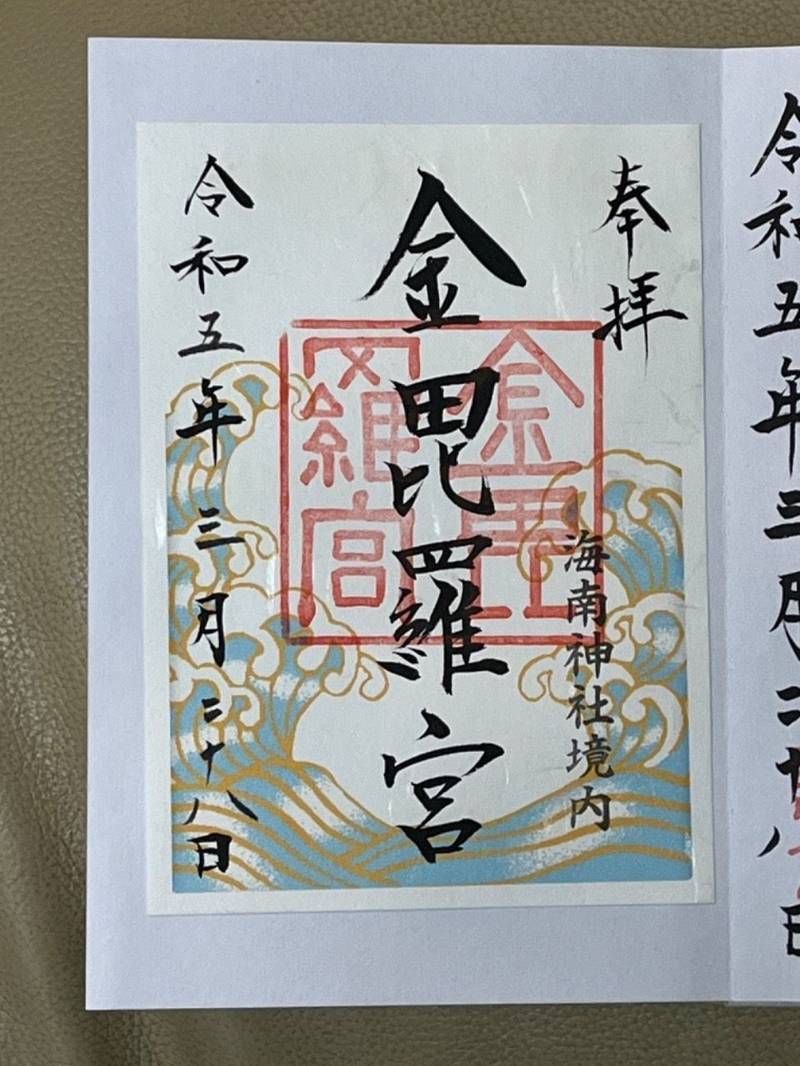 令和五年三月二十八日
奉拝
海南神社境内
金毘羅宮
金毘羅宮
令和五年三月二十八日